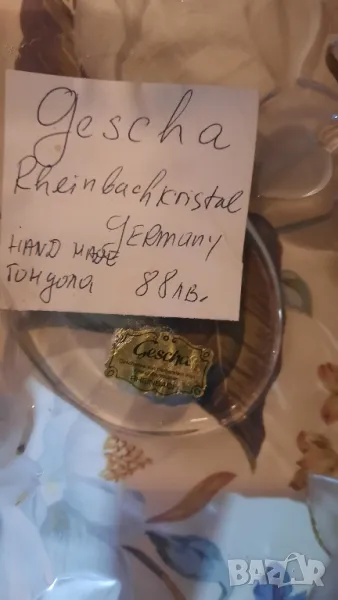 Gescha
Rheinbachkristal
GERMANY
HAND MADE
ГОНДОЛА 88 лв.
Gescha
BAZAR